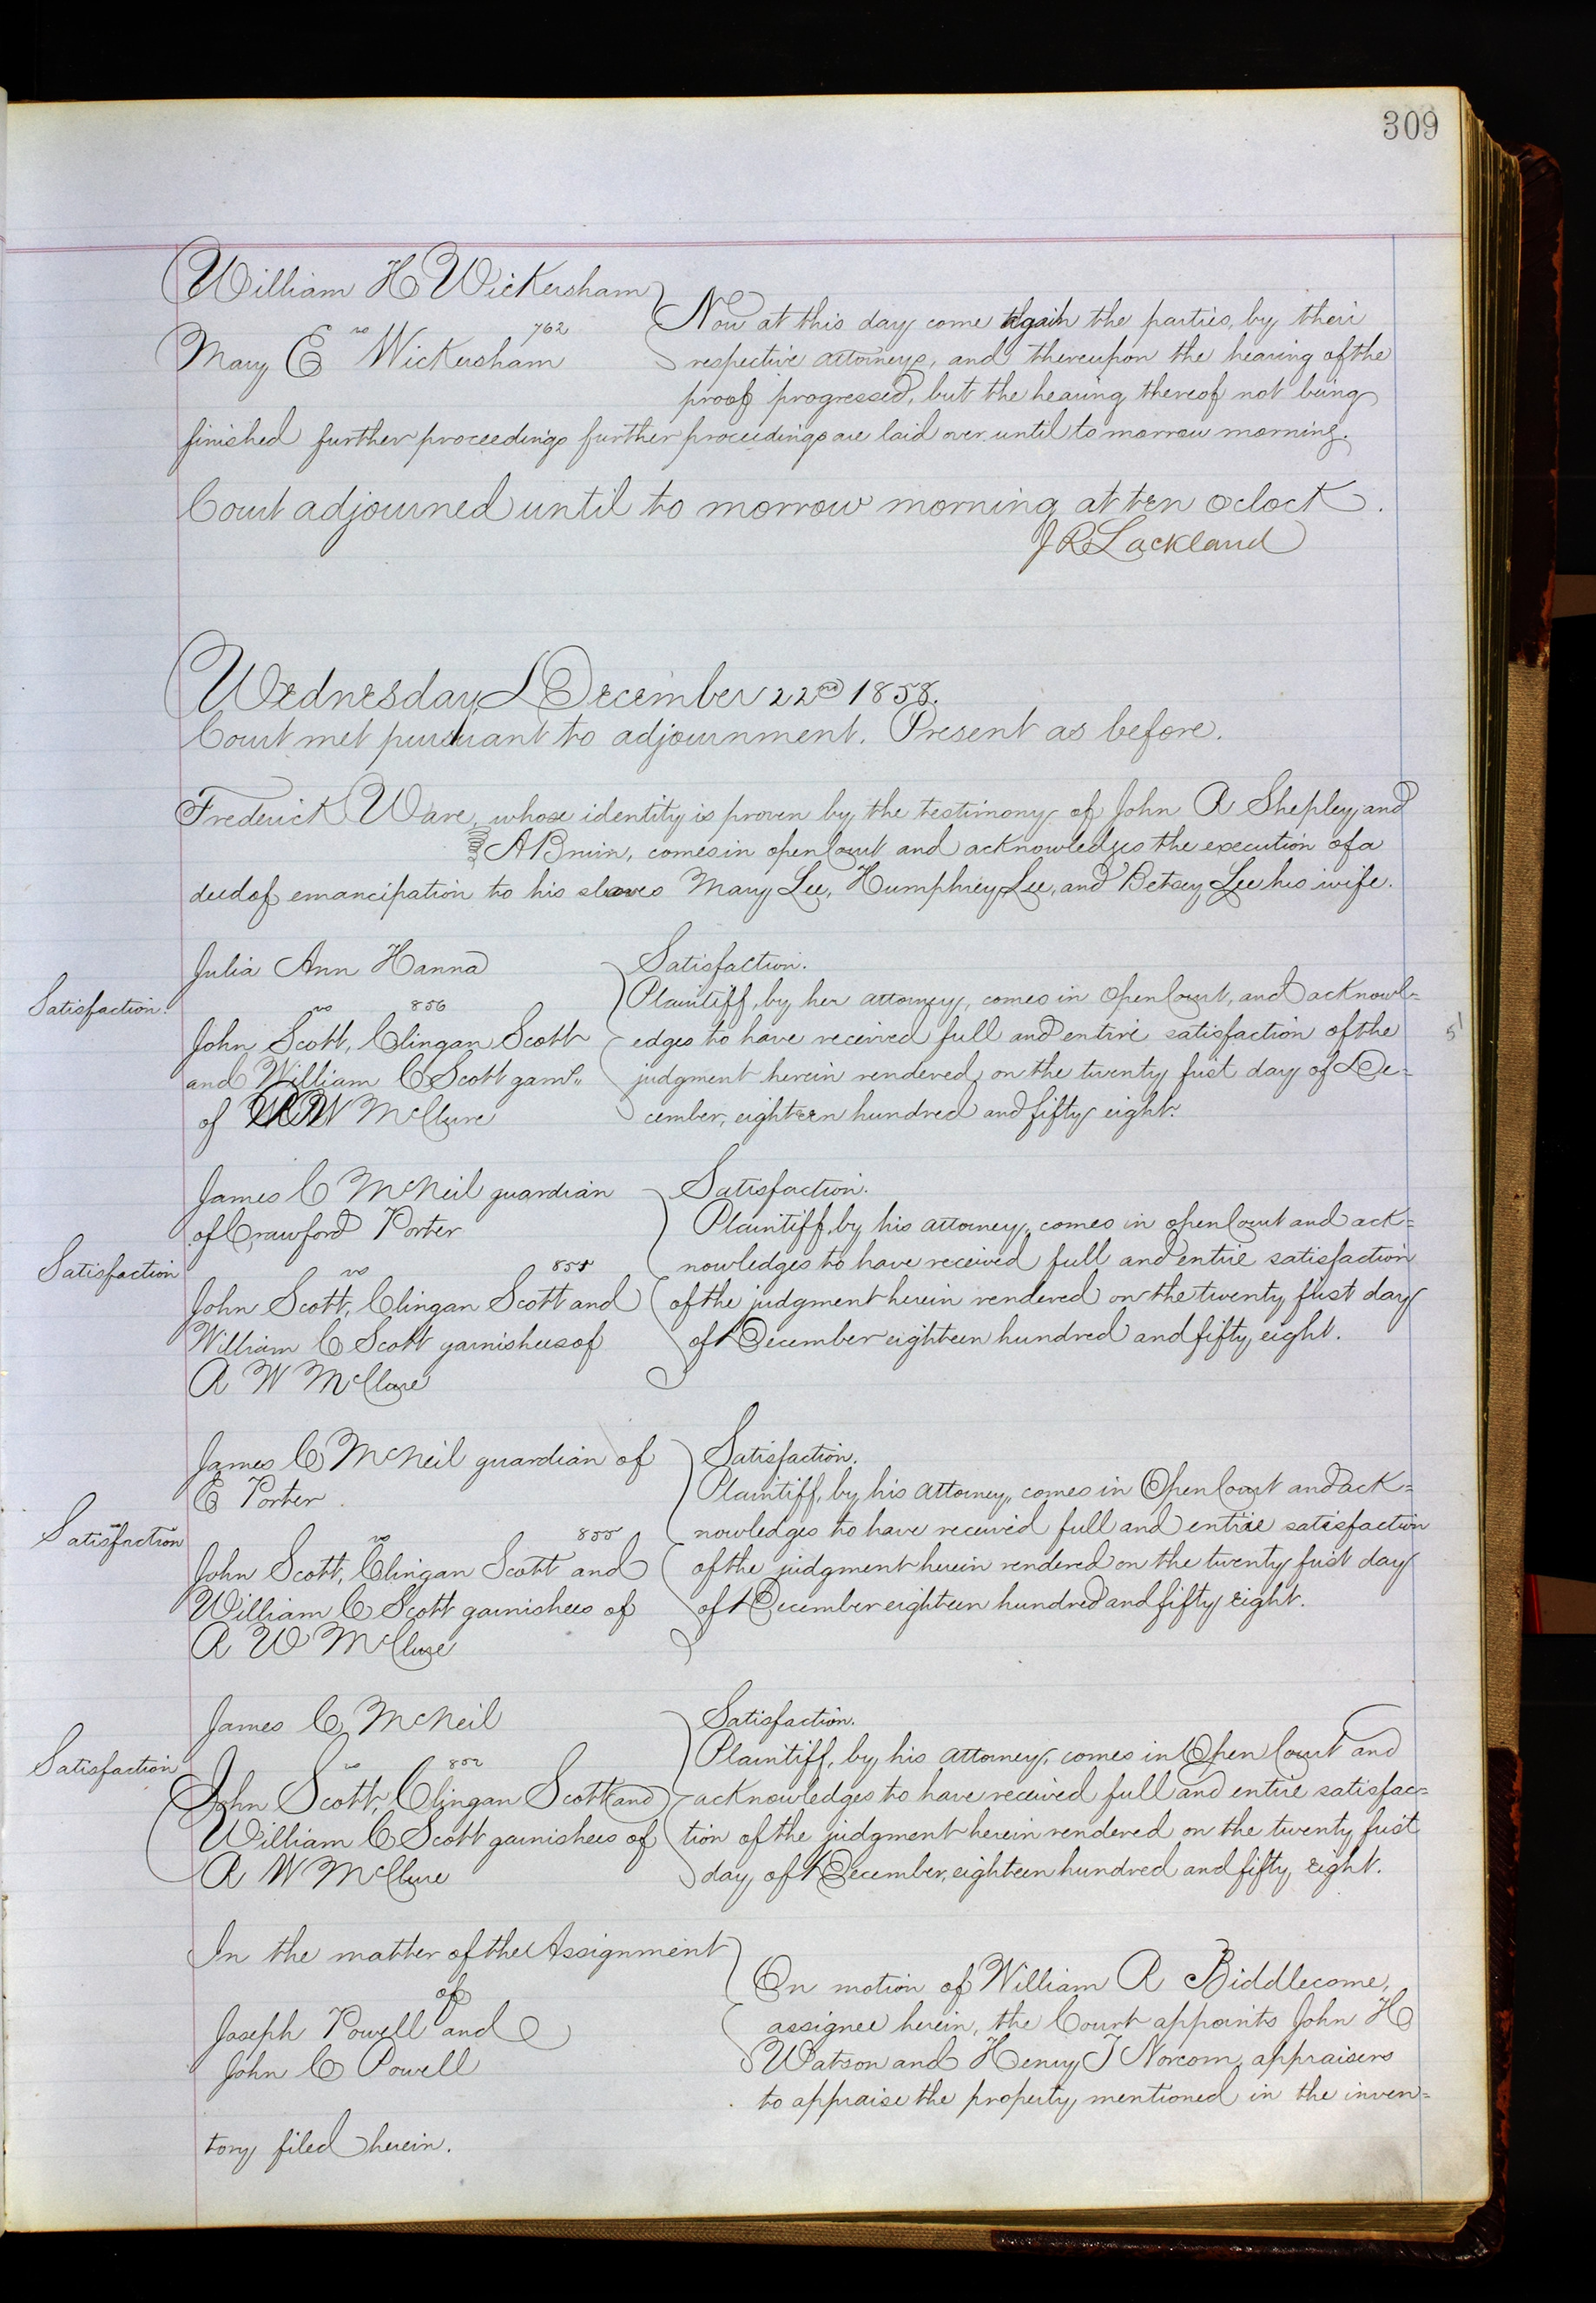 309
William H Wickersham
vs 762
Mary E Wickersham
Now at this day come again the parties, by their
respective attorneys, and thereupon the hearing of the
proof progressed, but the hearing thereof not being
finished further proceedings further proceedings are laid over until to morrow morning.
Court adjourned until to morrow morning at ten oclock.
J R Lackland
Wednesday, December 22nd 1858.
Court met pursuant to adjournment. Present as before.
Frederick Ware, whose identity is proven by the testimony of John R Shepley and
A Bruin, comes in open Court and acknowledges the execution of a
deed of emancipation to his slaves Mary Lee, Humphrey Lee, and Betsey Lee his wife.
Satisfaction.
Julia Ann Hanna
vs 856
John Scott, Clingan Scott
and William C Scott garns.
of McClure
Satisfaction.
Plaintiff, by her attorney, comes in Open Court, and acknowl=
edges to have received full and entire satisfaction of the
judgment herein rendered, on the twenty first day of De=
cember, eighteen hundred and fifty eight.
5'
Satisfaction
James C McNeil guardian
of Crawford Porter
vs
John Scott, Clingan Scott and
William C Scott garnishees of
A W McClure
Satisfaction.
Plaintiff, by his attorney, comes in open Court and ack=
nowledges to have received full and entire satisfaction
of the judgment herein rendered on the twenty first day
of December eighteen hundred and fifty eight.
Satisfaction
James C McNeil guardian of
E Porter
vs 855
John Scott, Clingan Scott and
William C Scott garnishees of
A W McClure
Satisfaction.
Plaintiff, by his attorney, comes in Open Court and ack=
nowledges to have received full and entire satisfaction
of the judgment herein rendered on the twenty first day
of December eighteen hundred and fifty eight.
Satisfaction
James C McNeil
vs
John Scott, Clingan Scott and
William C Scott garnishees of
A W McClure
Satisfaction.
Plaintiff, by his attorney, comes in Open Court and
acknowledges to have received full and entire satisfac=
tion of the judgment herein rendered on the twenty first
day of December, eighteen hundred and fifty eight.
In the matter of the Assignment
of
Joseph Powell and
John C Powell
On motion of William R Biddlecome,
assignee herein, the Court appoints John H
Watson and Henry T Norcom, appraisers
to appraise the property mentioned in the inven=
tory filed herein.